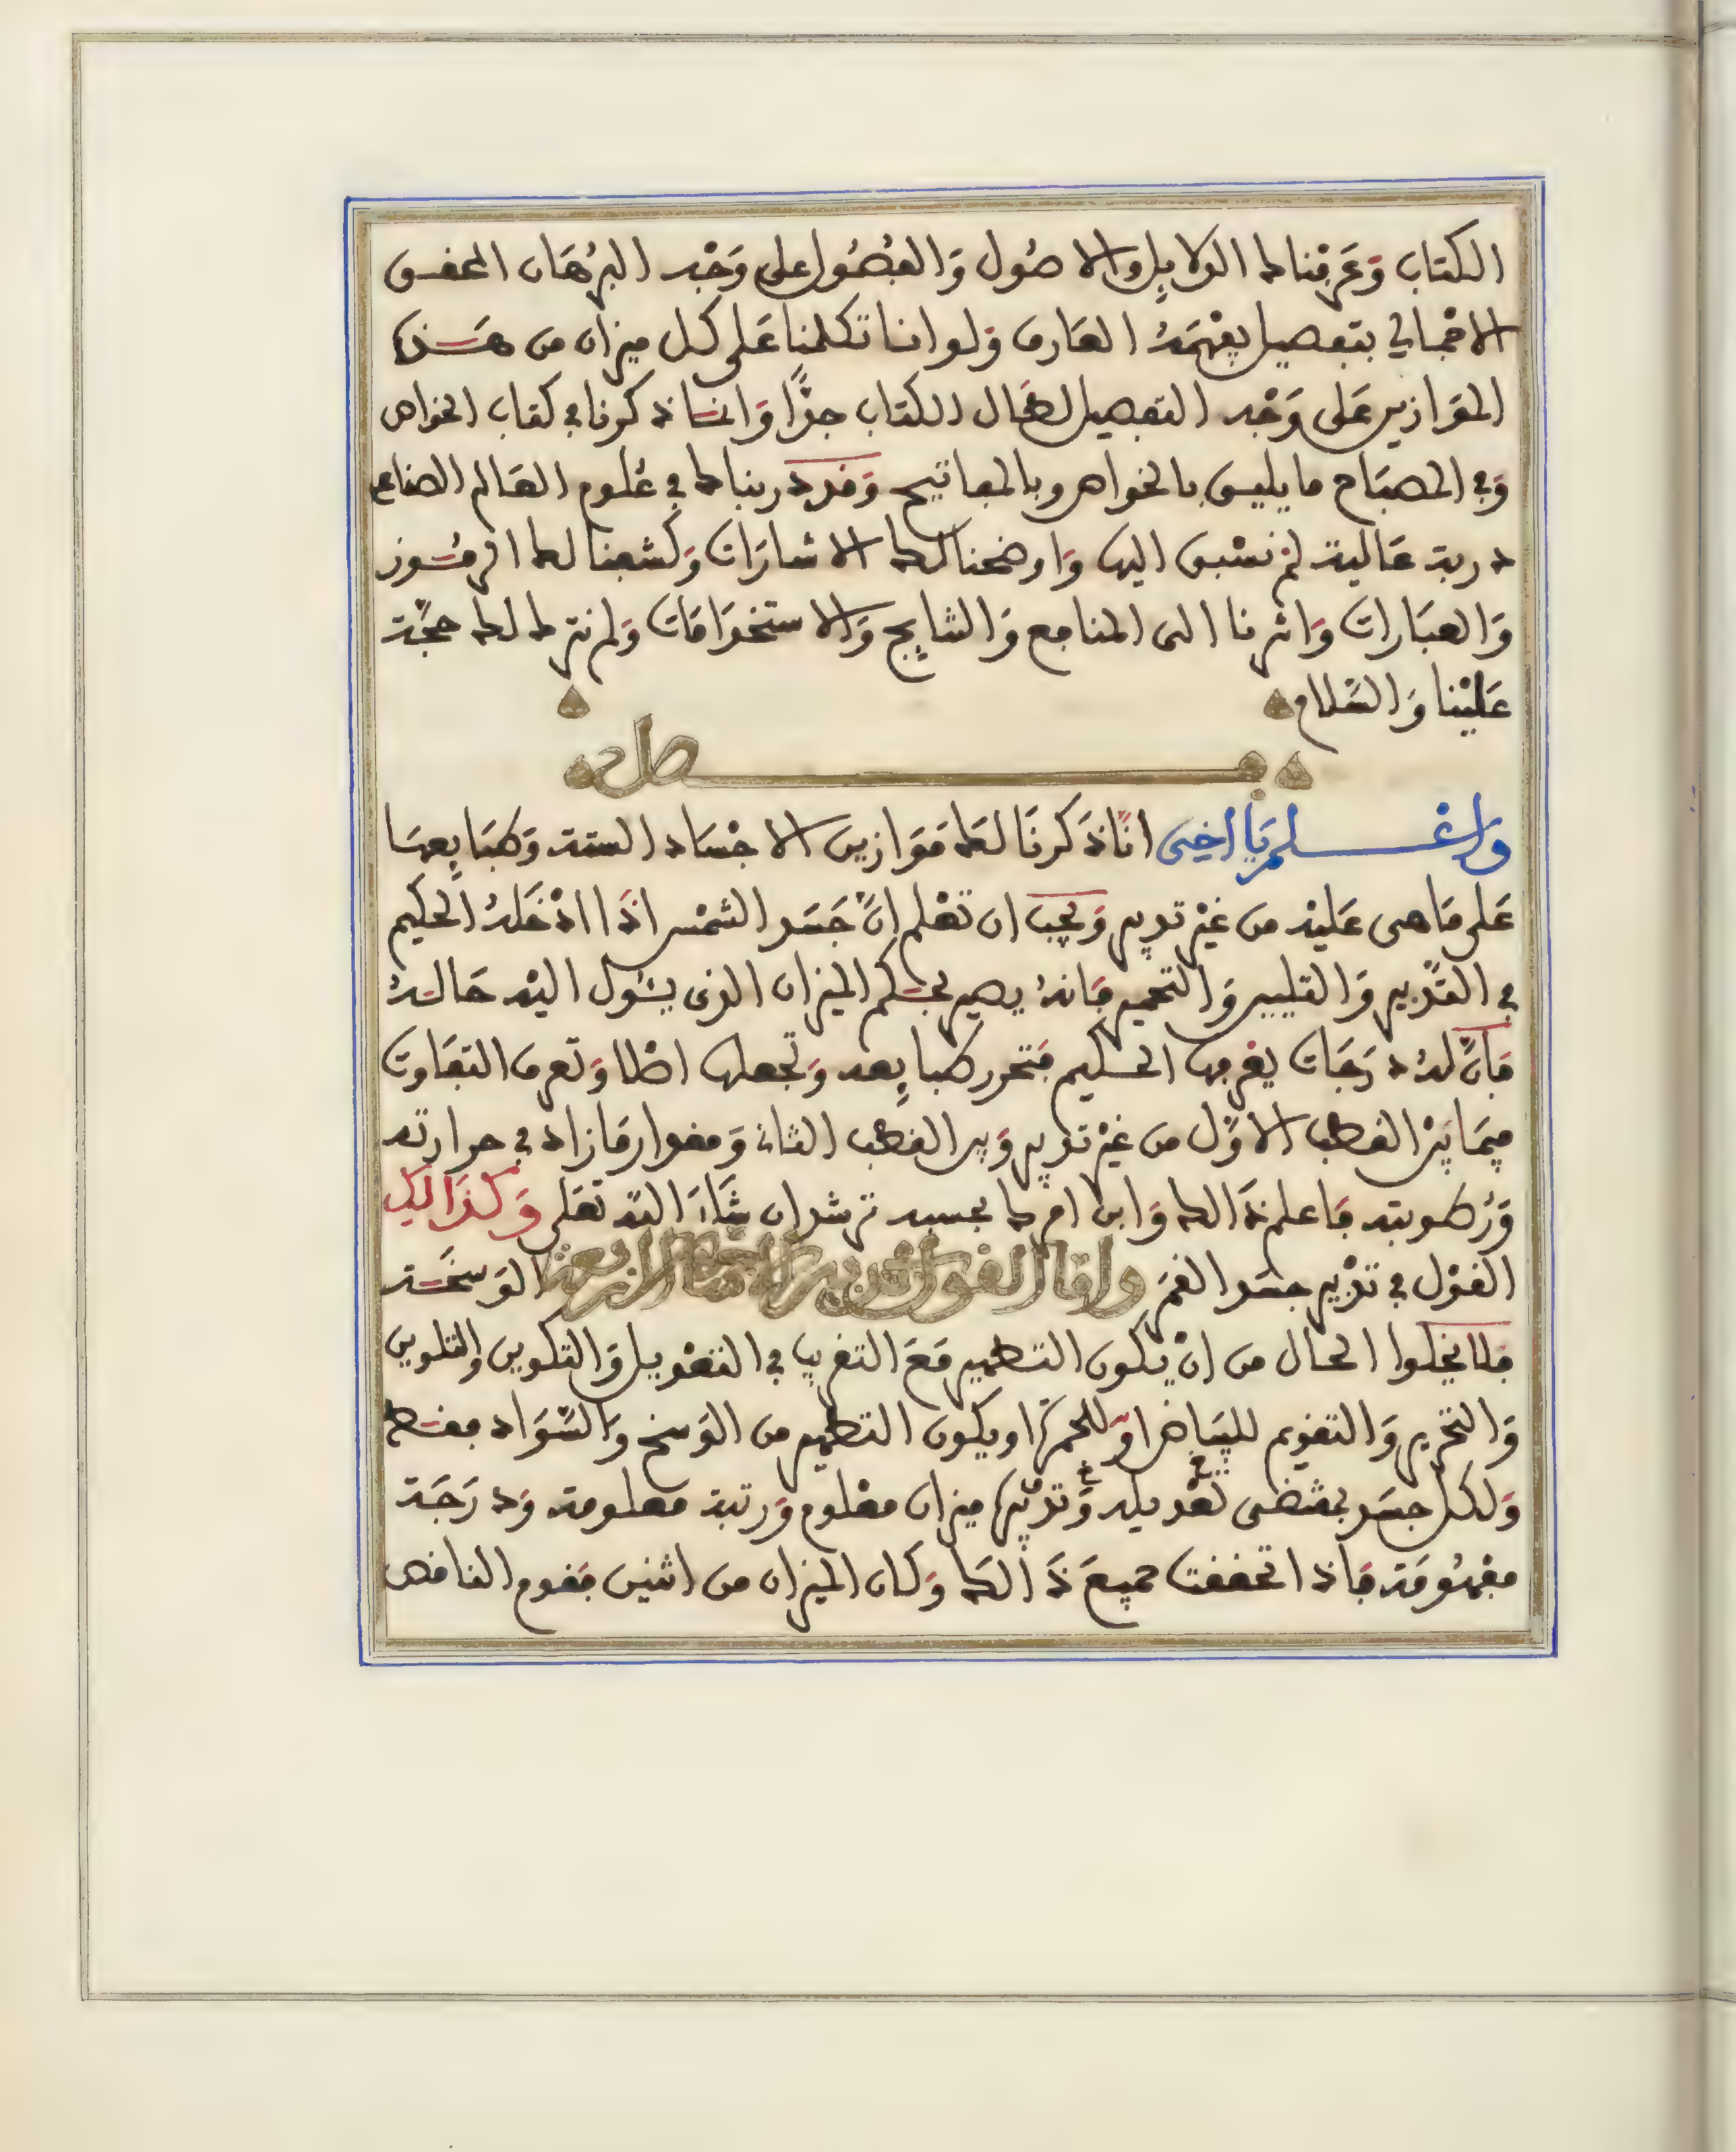 الكتاب وَعَرفناك الدلايل والاصُول وَالفُصُول على وَجْه البرُهَان المحقق
الاجْمالي بتفصيل يفهَمَهُ العَارف وَلو اننا تكلمنا عَلى كل ميزان من هَذه
المَوَازين عَلى وَجْه التفصيل لطَال الكتاب جدًّا وَانمَا ذكرنا في كتاب الخواص
وَفي المصبَاح ما يليق بالخواص وبالمفاتيح وَقد دربناك في عُلوم العَالم الصناعي
دربة عَالية لم نسْبق اليها وَاوضحنا لك الاشارَات وَكشفنا لك الرمُوز
وَالعبَارات وَاشرنا الى المنافع وَالنتايج وَالاستخدَامَات وَلم نترك لك حجَّة
عَليْنا وَالسَّلام
فصل
وَاعْلم يَا اخِي انَّا ذَكرنَا لكَ مَوَازين الاجْسَاد الستة وَطبَايِعهَا
عَلى مَا هى عَليْه من غيْر تدبير وَيجب ان تعْلم انَّ جَسَد الشمْس اذَا ادْخَلهُ الحكيم
في التدْبير وَالتليين وَالتحمير فانهُ يصير بحكم الميزان الذى يئول اليْه حَالهُ
فَانَّ لهُ دَرَجَات يعْرفها الحكيم فتحرر طبايِعه وَتجعلها اصْلا وَتعرف التفَاوت
فيمَا بيْن القطب الاوَّل من غيْر تدبير وَبين القطب الثانى وَمقدار مَا زاد في حرارته
وَرُطوبته فاعلم ذَالك وَابن امرك بحسبه ترشد ان شَاءَ اللَّه تعَلى وَكذَالِك
القوْل في تدْبير جسَد القمَر وامَّا القول في تدبير الاجسَاد الاربعة الوَسخَة
فلا يخلوا الحال من انْ يكون التطهير مَعَ التقريب في التعْديل وَالتكوين وَالتلوين
وَالتحرير وَالتقويم للبيَاض اوْ للحمرَة او يكون التطهير من الوَسخ وَالسَّوَاد فقط
وَلكل جسَد بمقتضى تعْديله وَتدْبيره ميزان معْلوم وَرتبة معلومة وَدرَجَة
مفهُومَة فاذا تحققت جميعَ ذَالكَ وَكان الميزان من اثنين فقوم الناقص